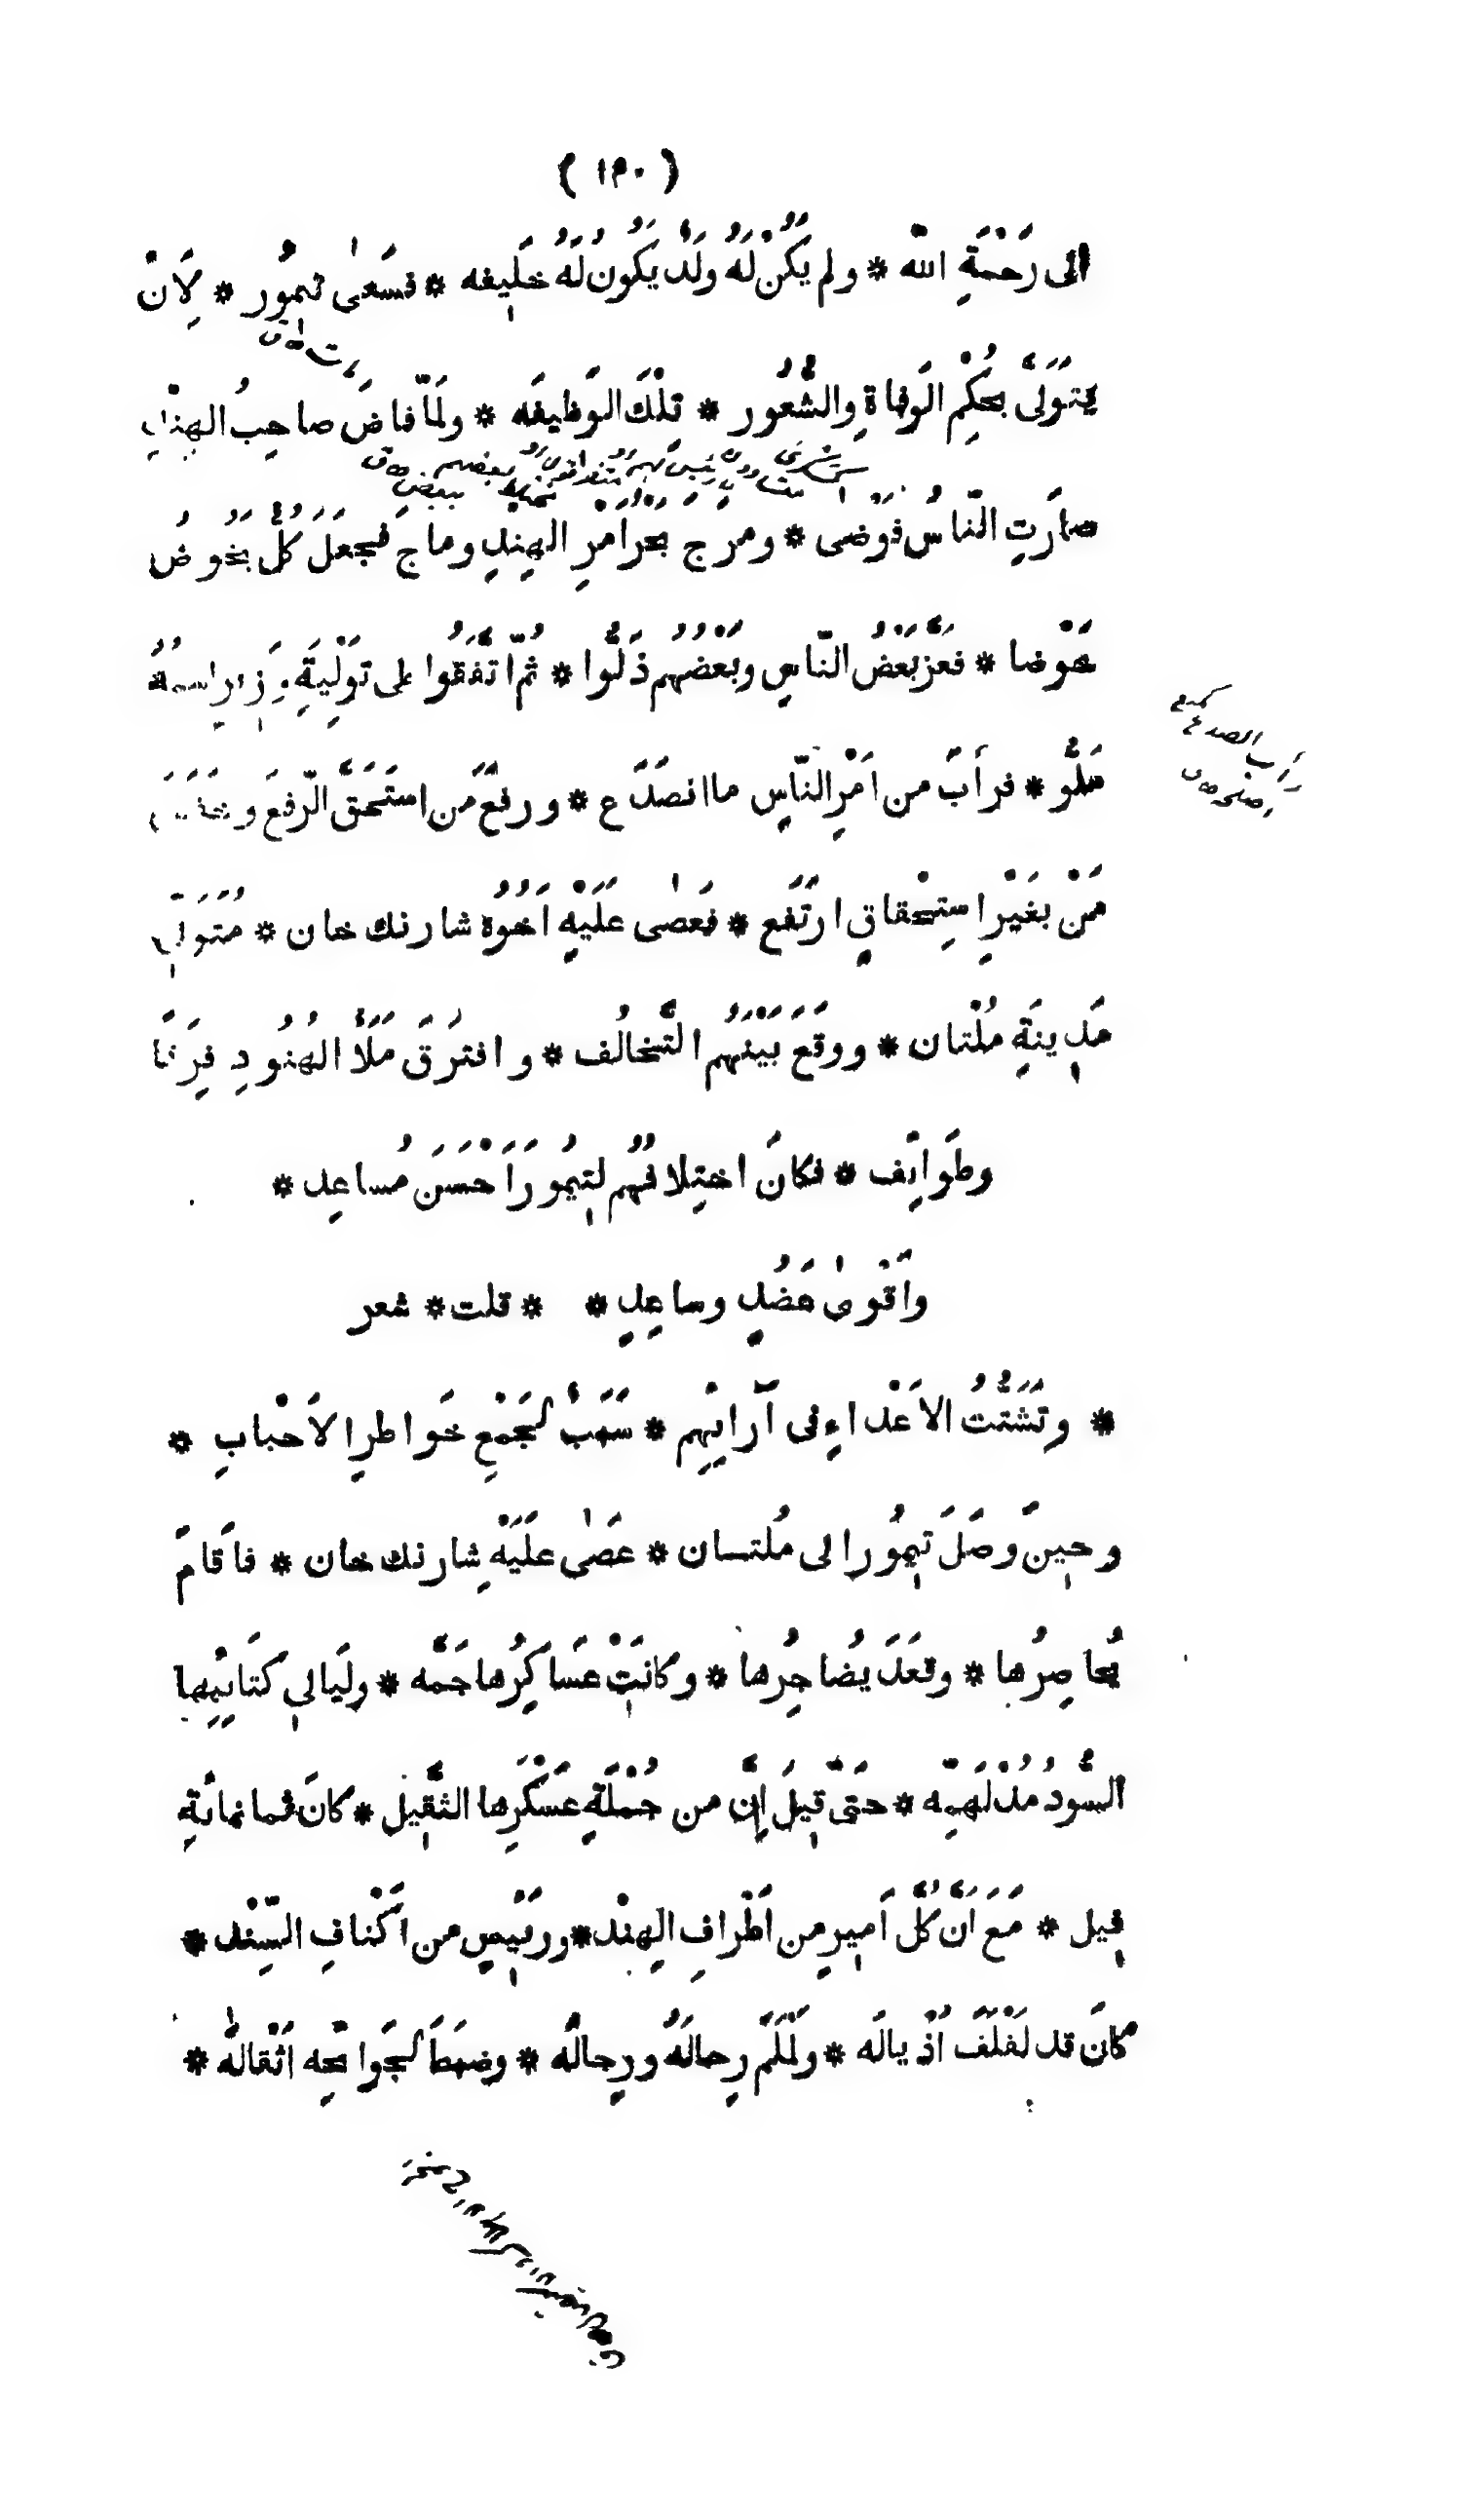 ( ١٣٠ )
الى رَحْمَةِ الله * ولم يَكُنْ لَهُ ولَدٌ يَكُونُ لَهُ خَلِيفه * فسَعىٰ تيمُور * لِاَنْ
يَتَوَلّىٰ بحُكْمِ الوَفاةِ والشُّغُور * تِلْكَ الوَظيفَه * ولَمّا فاضَ صاحِبُ الهِنْدِ
صارَتِ النّاسُ فَوْضى * ومَرَجَ بَحْرُ اَمْرِ الهِنْدِ وماجَ فجَعَلَ كُلٌّ يَخُوضُ
خَوْضا * فعَزَّ بَعْضُ النّاسِ وبَعْضُهُم ذَلُّوا * ثُمَّ اتَّفَقُوا على تَوْلِيَةِ وَزيرٍ اسمُهُ
مَلُّو * فرأَبَ من اَمْرِ النّاسِ ما انصَدَع * ورفَعَ مَن استَحَقَّ الرّفعَ و
مَنْ بغَيْرِ استِحْقاقٍ ارتَفَع * فعَصٰى عَلَيْهِ اَخُوهُ شارنك خان * مُتَوَلّي
مَدينَةِ مُلْتان * ووقَعَ بَيْنَهُم التَّخالُف * وافتَرَقَ مَلَأُ الهُنُودِ فِرَقًا
وطَوائِف * فكانَ اختِلافُهُم لتيمُورَ اَحْسَنَ مُساعِدٍ *
واَقْوىٰ عَضُدٍ وساعِدٍ * * قلت * شعر
* وتَشَتُّتُ الاَعْداءِ فى آرائِهِم * سَبَبٌ لجَمْعِ خَواطِرِ الاَحْبابِ *
وحينَ وصَلَ تيمُور الى مُلتسان * عَصٰى عَلَيْهِ شارنك خان * فاَقامَ
يُحاصِرُها * وقعَدَ يُضاجِرُها * وكانَتْ عَساكِرُها جَمّه * ولَيالي كتائِبِها
السُّودُ مُدْلَهِمّه * حَتّى قيلَ اِنَّ من جُمْلَةِ عَسْكَرِها الثَّقيل * كانَ ثمانمائَةِ
فيل * مَعَ اَنَّ كُلَّ اَميرٍ من اَطْرافِ الهِنْد * ورئيسٍ من اَكْنافِ السِّنْد *
كانَ قد لَفْلَفَ اَذْيالَه * ولَمْلَمَ رِحالَهُ ورِجالَه * وضبَطَ لجَوائِحِه اَثْقالَه *